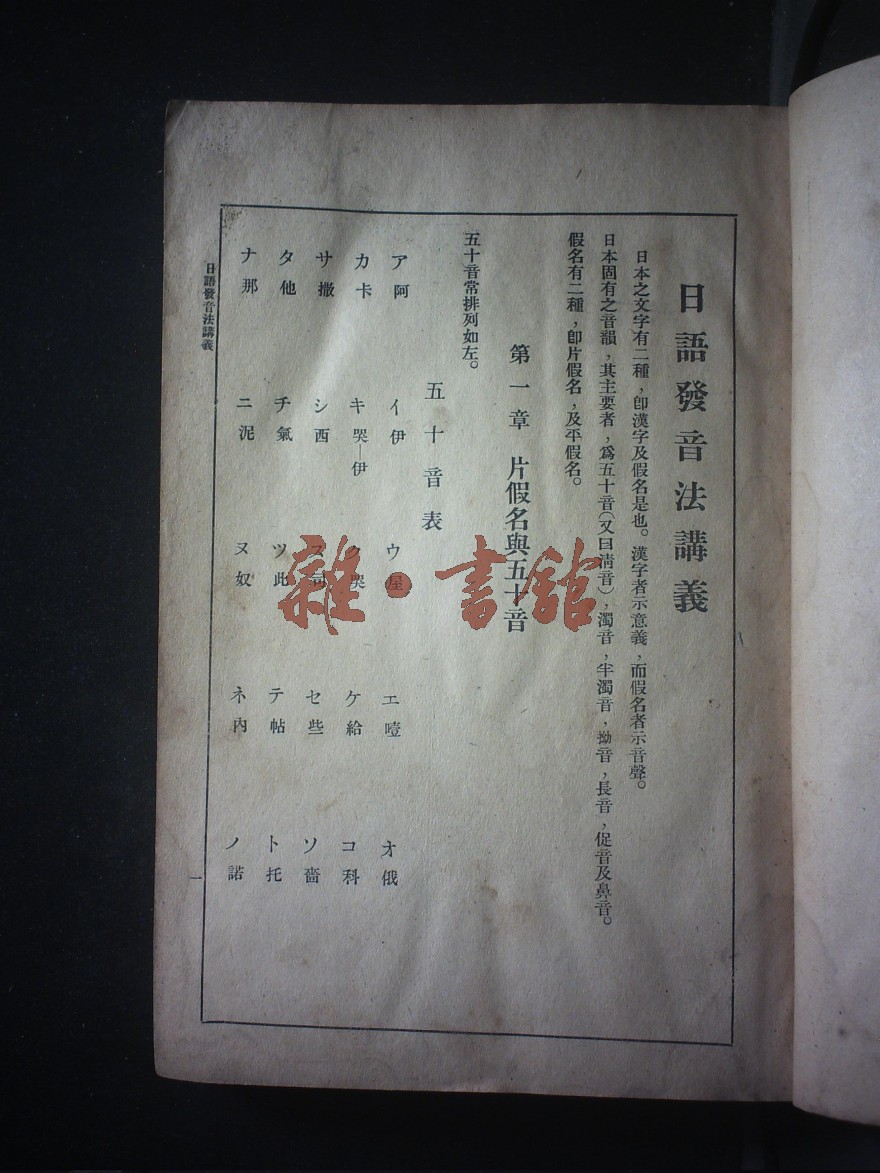 日語發音法講義
日本之文字有二種，卽漢字及假名是也。漢字者示意義，而假名者示音聲。
日本固有之音韻，其主要者，爲五十音（又曰淸音），濁音，半濁音，拗音，長音，促音及鼻音。
假名有二種，卽片假名，及平假名。
第一章 片假名與五十音
五十音常排列如左。
五十音表
ア阿 イ伊 ウ屋 エ噎 オ俄
カ卡 キ哭—伊 ク哭 ケ給 コ科
サ撒 シ西 ス司 セ些 ソ嗇
タ他 チ氣 ツ此 テ帖 ト托
ナ那 ニ泥 ヌ奴 ネ內 ノ諾
日語發音法講義
一
雜·書館